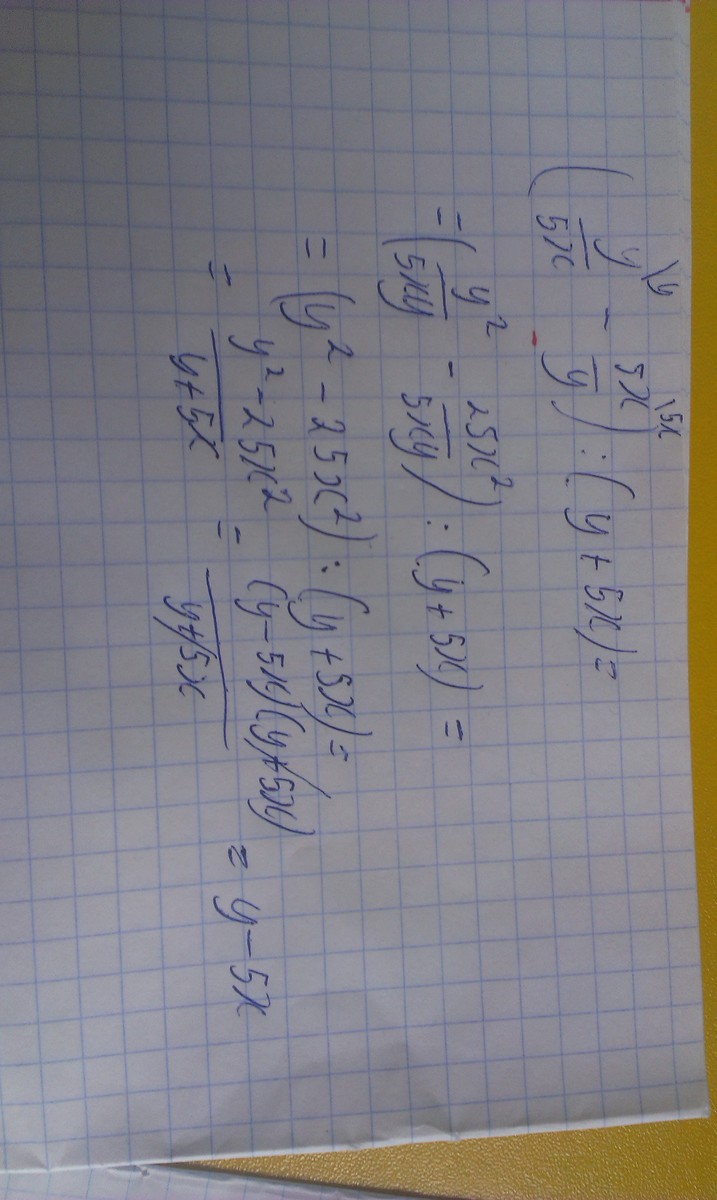 (y/5x \y − 5x/y \5x) : (y + 5x) =
= (y²/5xy − 25x²/5xy) : (y + 5x) =
= (y² − 25x²) : (y + 5x) =
= y² − 25x²/y + 5x = (y − 5x)(y + 5x)/y + 5x = y − 5x